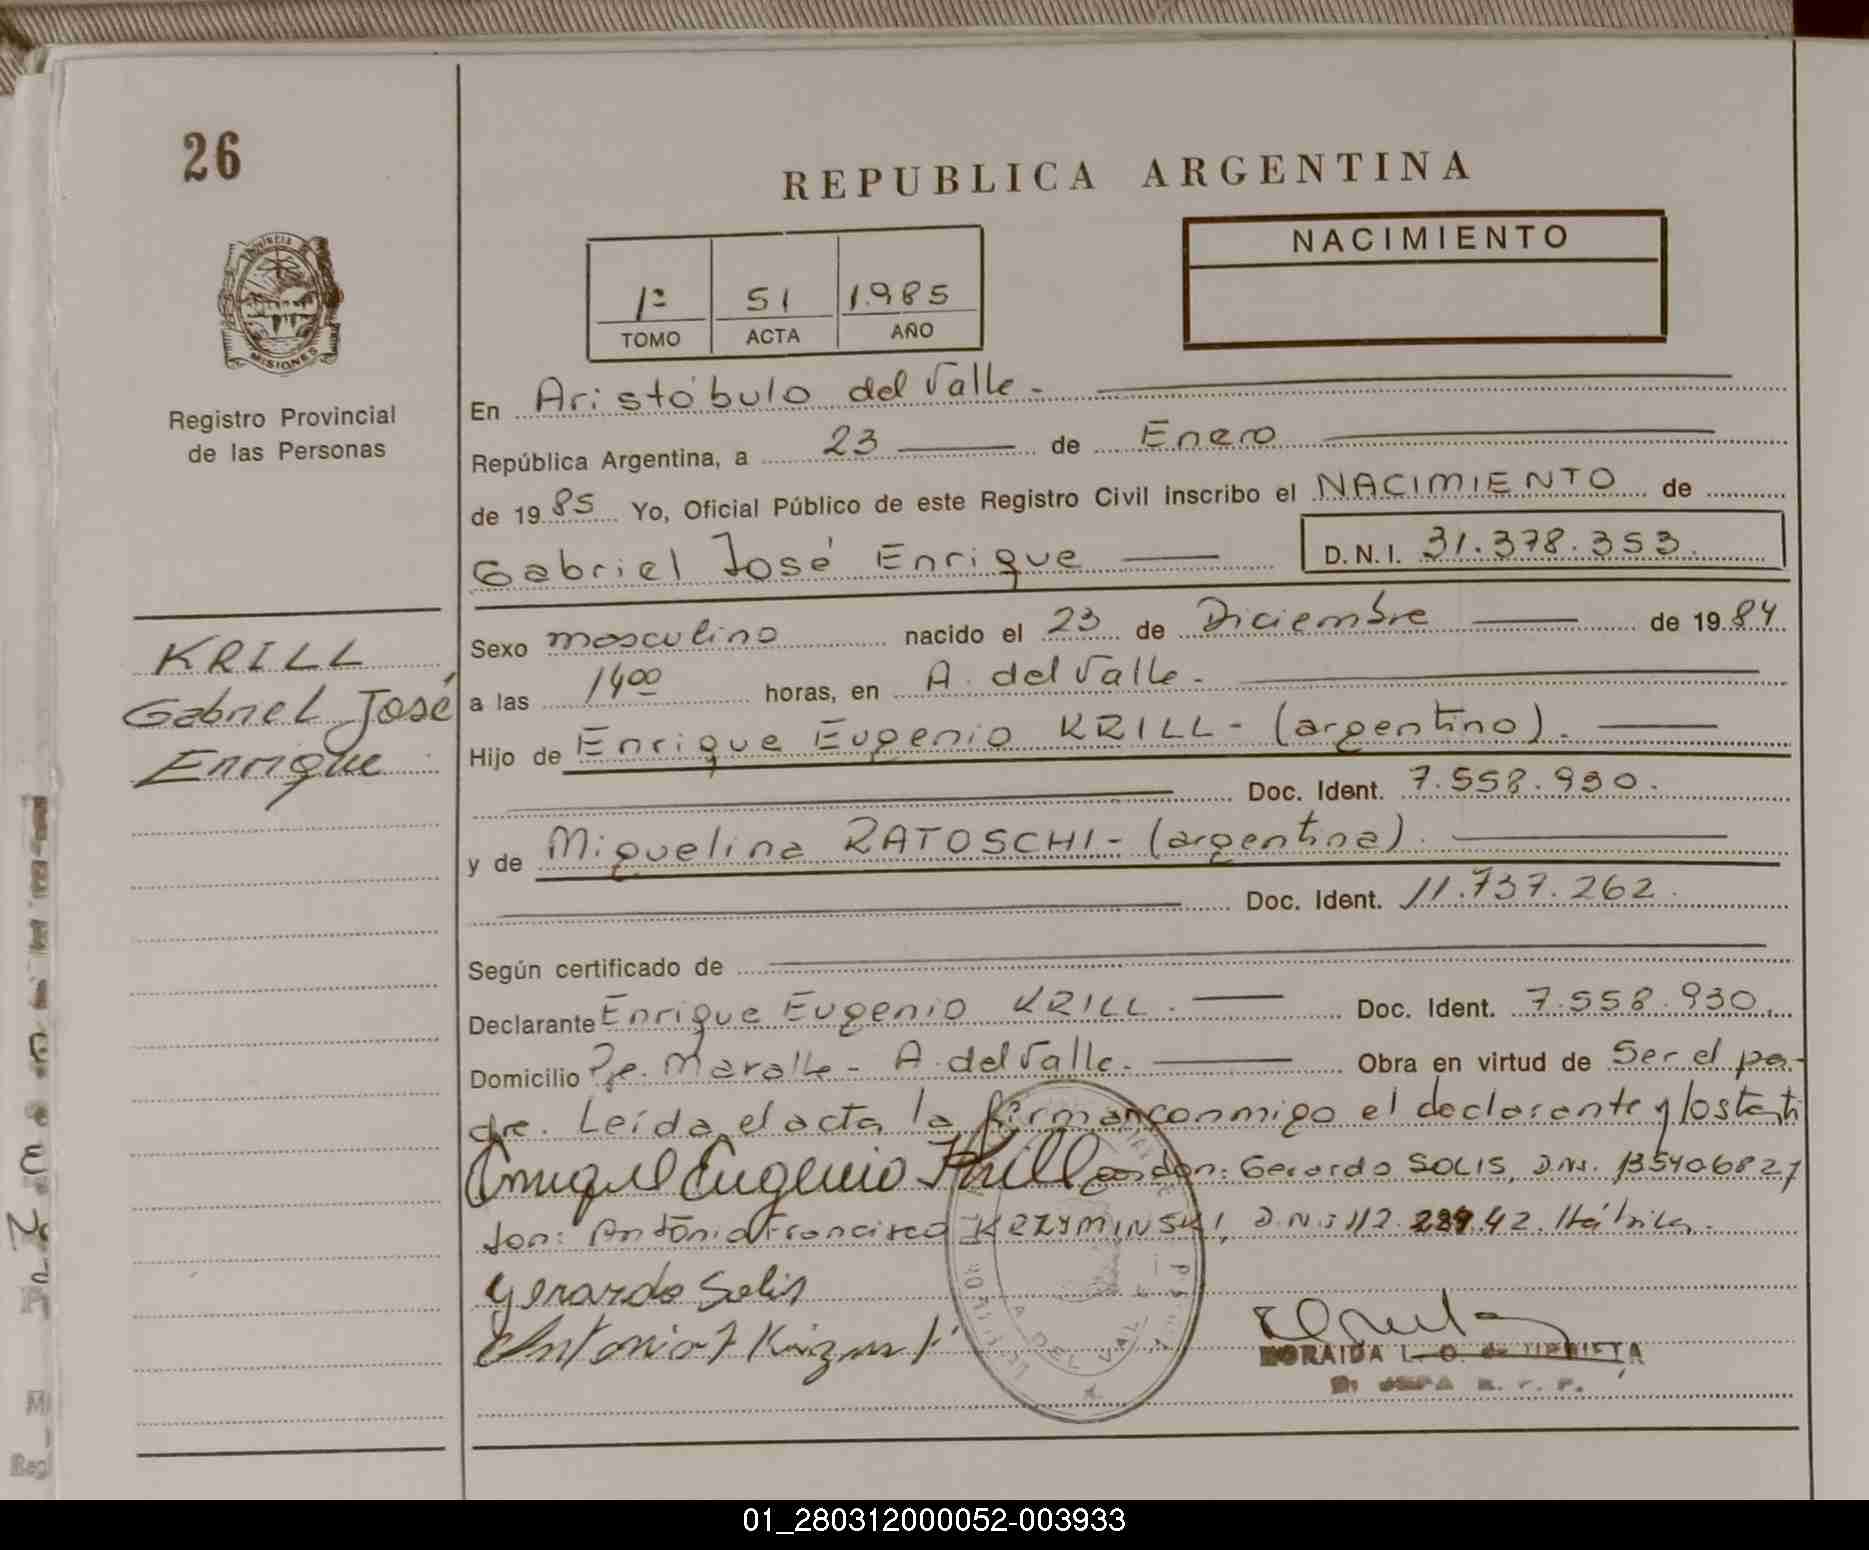 26
REPUBLICA ARGENTINA
NACIMIENTO
1º 51 1.985
TOMO ACTA AÑO
PROVINCIA DE MISIONES
Registro Provincial
de las Personas
En Aristóbulo del Valle.
República Argentina, a 23 de Enero
de 1985 Yo, Oficial Público de este Registro Civil inscribo el NACIMIENTO de
Gabriel José Enrique D.N.I. 31.378.353.
KRILL
Gabriel José
Enrique
Sexo masculino nacido el 23 de Diciembre de 1984
a las 1400 horas, en A. del Valle.
Hijo de Enrique Eugenio KRILL - (argentino).
Doc. Ident. 7.558.930.
y de Miguelina RATOSCHI - (argentina).
Doc. Ident. 11.737.262.
Según certificado de
Declarante Enrique Eugenio KRILL. Doc. Ident. 7.558.930.
Domicilio A. del Valle. Obra en virtud de Ser el pa-
dre. Leída el acta la firman conmigo el declarante y los testi
Enrique Eugenio Krill don: Gerardo SOLIS, D.N.I.
don: Antonio Francisco KRZYMINSKI, D.N.I.
Gerardo Solis
Antonio F
A. DEL VALLE
01_280312000052-003933